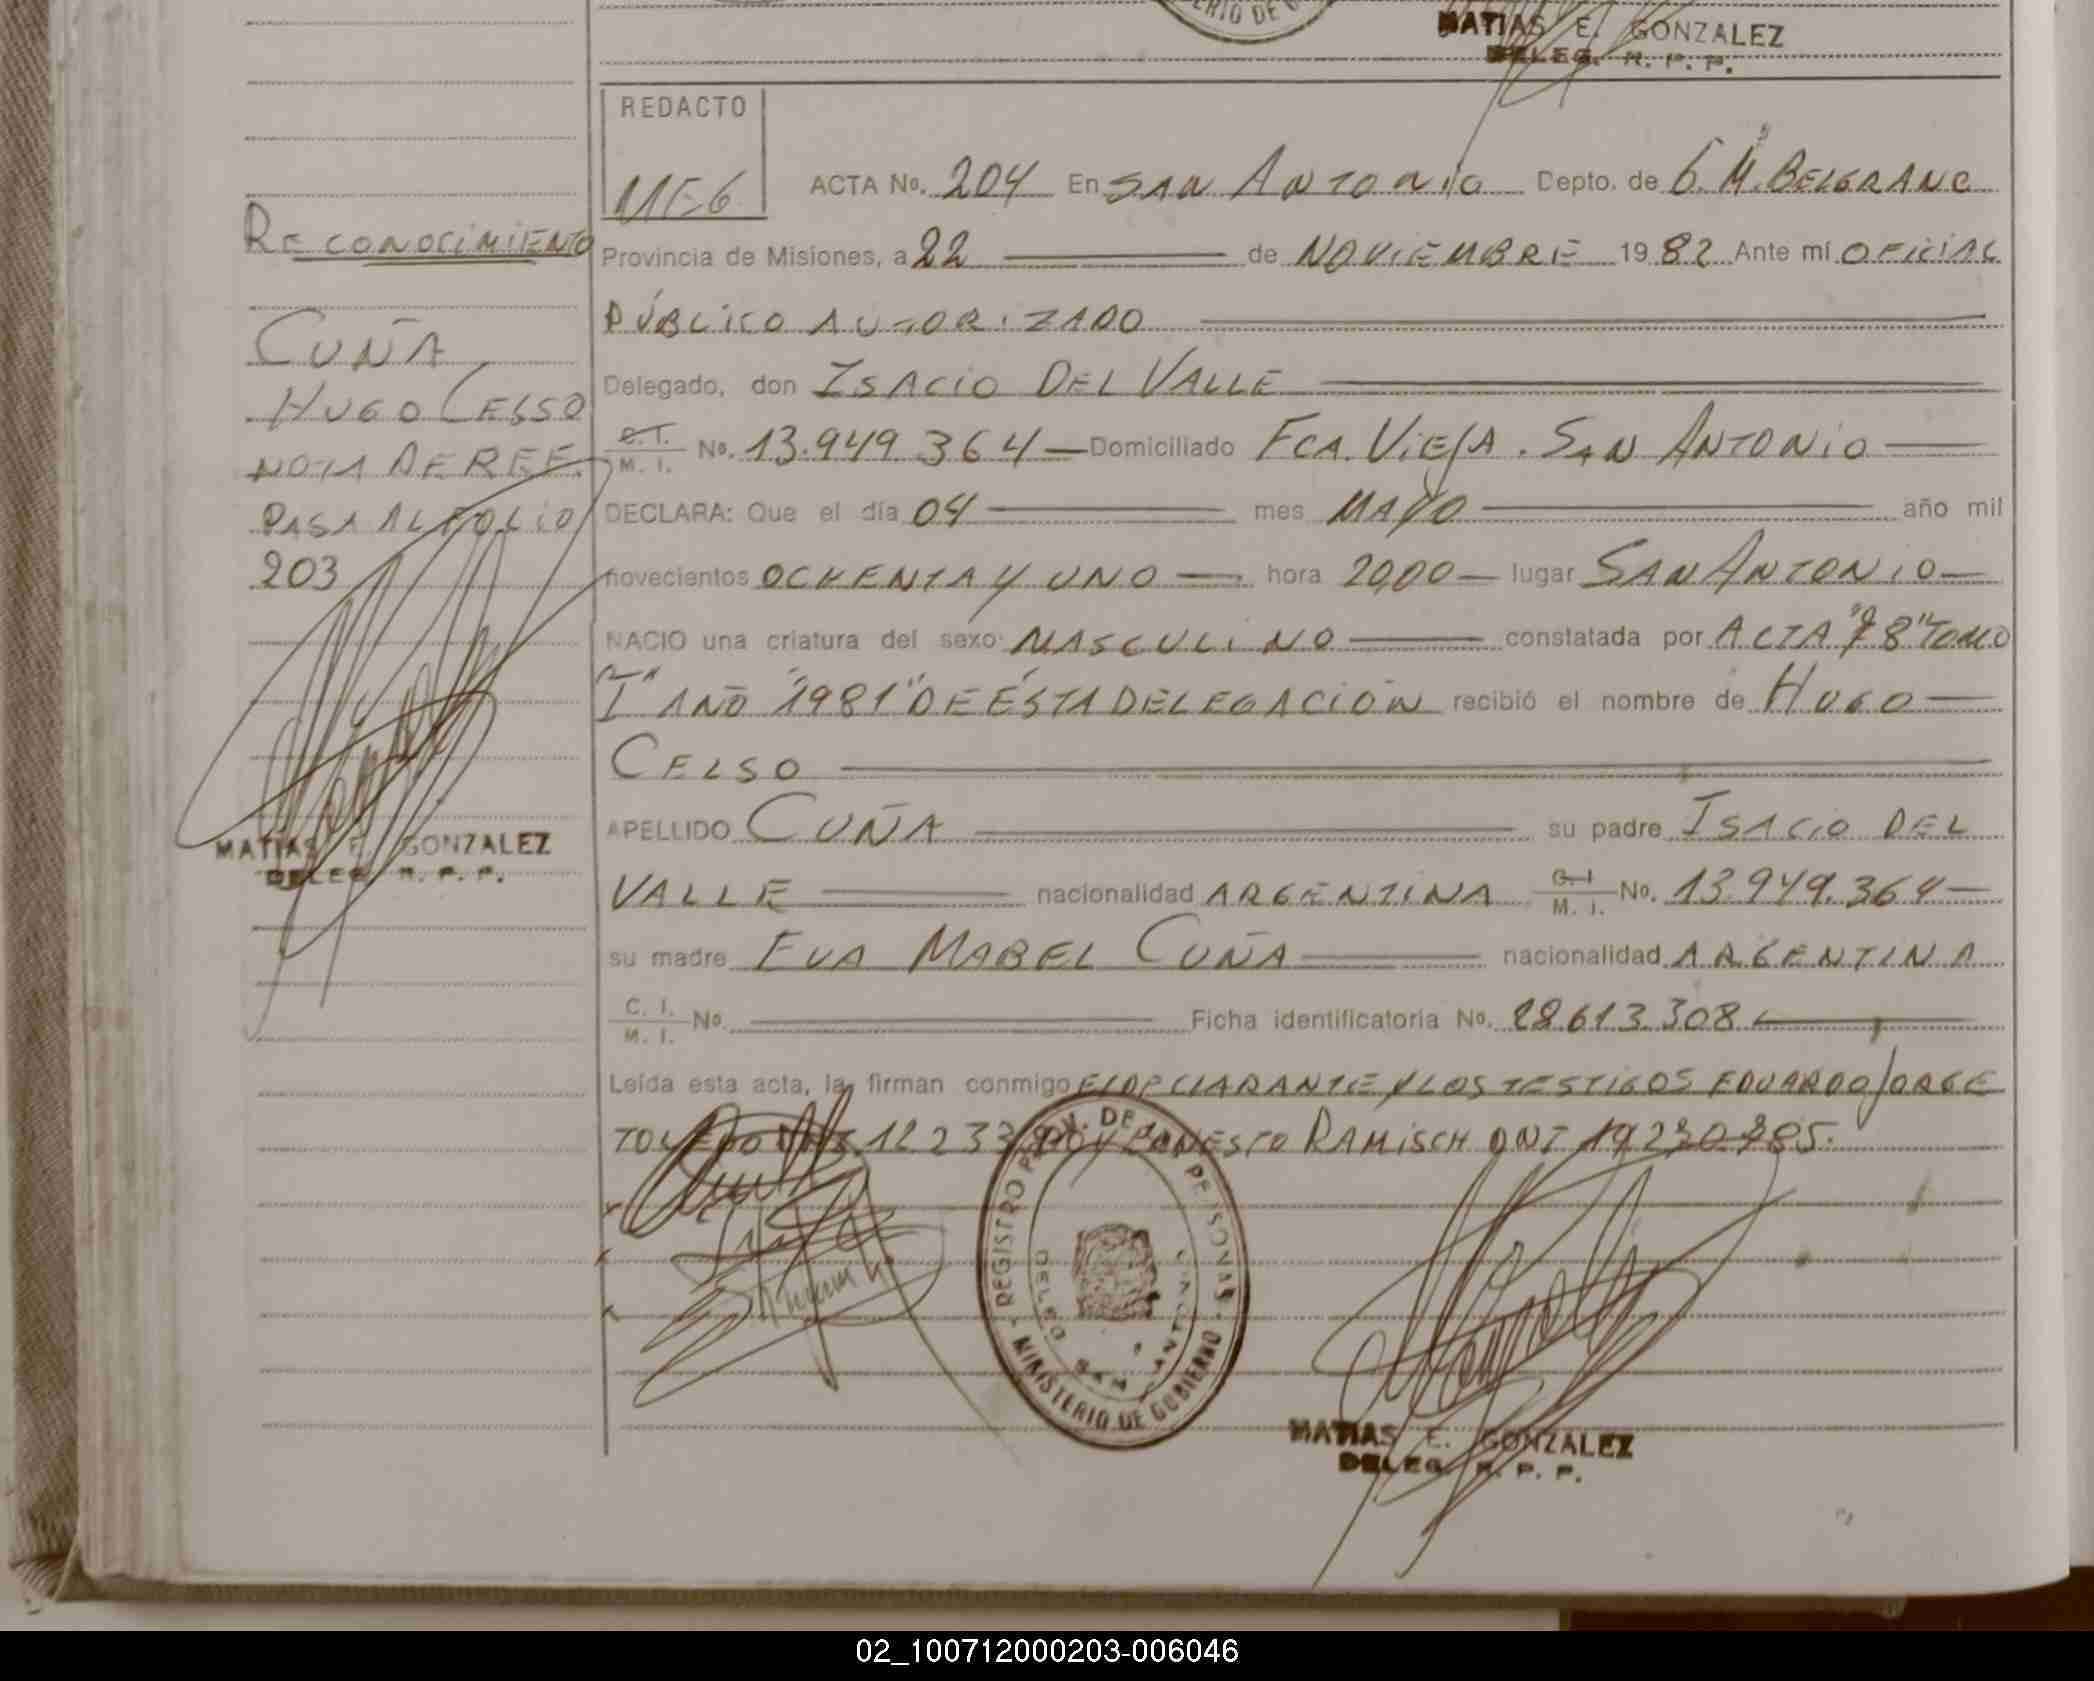 MATIAS E. GONZALEZ
DELEG. R. P. P.
REDACTO
MEG
ACTA No. 204 En SAN ANTONIO Depto. de G. M. BELGRANO
Provincia de Misiones, a 22 de NOVIEMBRE 1982 Ante mí OFICIAL
PÚBLICO AUTORIZADO
Delegado, don ISACIO DEL VALLE
C.I. M. I. No. 13.949.364 Domiciliado FCA. VIEJA. SAN ANTONIO
DECLARA: Que el día 04 mes MAYO año mil
novecientos OCHENTA Y UNO hora 20,00 lugar SAN ANTONIO
NACIO una criatura del sexo MASCULINO constatada por ACTA "78" TOMO
"I" AÑO "1981" DE ÉSTA DELEGACIÓN recibió el nombre de HUGO
CELSO
APELLIDO CUÑA su padre ISACIO DEL
VALLE nacionalidad ARGENTINA C.I. M. I. No. 13.949.364
su madre EVA MABEL CUÑA nacionalidad ARGENTINA
C. I. M. I. No. Ficha identificatoria No. 28.613.308
Leída esta acta, la firman conmigo El DECLARANTE Y LOS TESTIGOS EDUARDO JORGE
TOLEDO 12.233 Y ERNESTO RAMISCH DNI
RECONOCIMIENTO
CUÑA
HUGO CELSO
NOTA DE REF.
PASA AL FOLIO
203
MATIAS E. GONZALEZ
DELEG. R. P. P.
REGISTRO PROV. DE LAS PERSONAS
MINISTERIO DE GOBIERNO
DELEG. SAN ANTONIO
MATIAS E. GONZALEZ
DELEG. R. P. P.
02_100712000203-006046